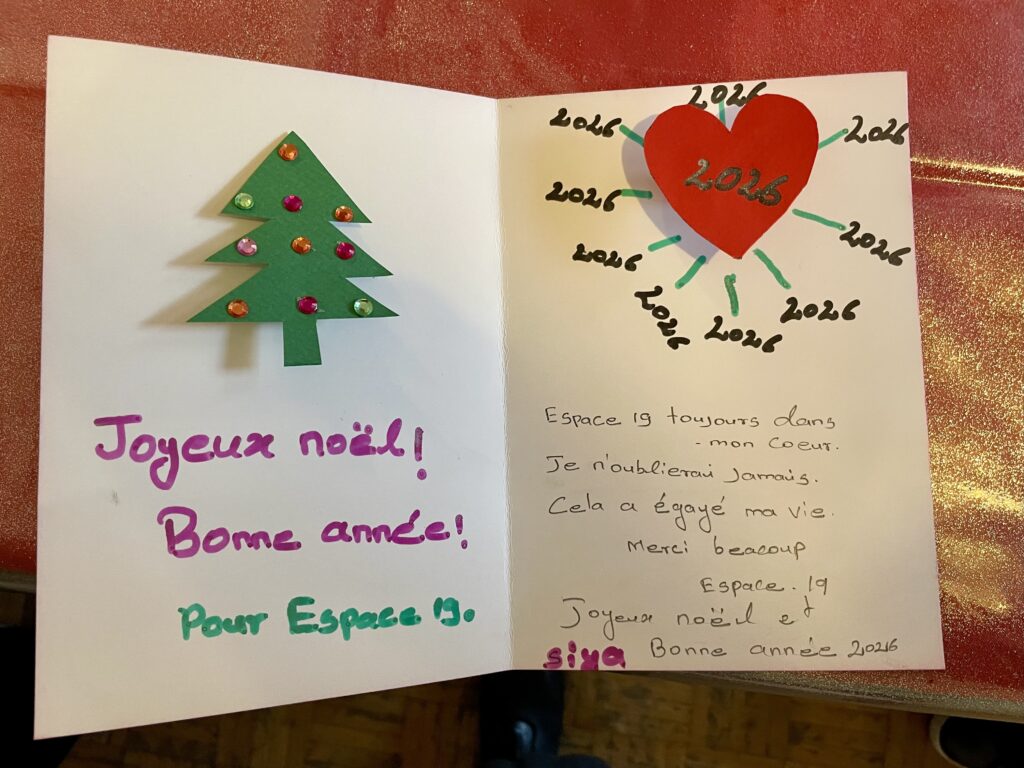 Joyeux noël!
Bonne année!
Pour Espace 19.
2026
2026
2026
2026
2026
2026
2026
2026
2026
2026
2026
Espace 19 toujours dans
- mon Coeur.
Je n'oublierai Jamais.
Cela a égayé ma vie.
Merci beacoup
Espace. 19
Joyeux noël et
siya Bonne année 2026